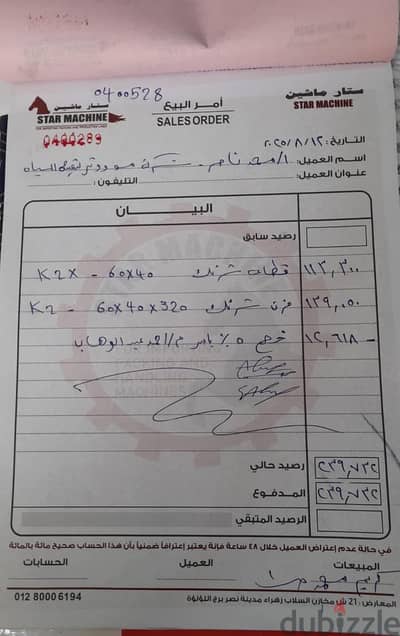 0400528
ستار ماشين
STAR MACHINE
أمر البيع
SALES ORDER
ستار ماشين
STAR MACHINE
0400289
التاريخ: ٢٠٢٥/٨/١٢
اسم العميل: ا/محمد ناصر - شركة لتقنية المياه
عنوان العميل: التليفون:
البيان
رصيد سابق
١١٣,٣٠٠ قطاعة شرنك ٦٠X٤٠ - K2X
١٣٩,٠٥٠ فرن شرنك ٦٠X٤٠X٣٢٠ - K2
١٢,٦١٨ - خصم ٥٪ بامر م/احمد عبد الوهاب
رصيد حالي ٢٣٩,٧٣٢
المدفوع ٢٣٩,٧٣٢
الرصيد المتبقي
في حالة عدم إعتراض العميل خلال ٤٨ ساعة فإنه يعتبر إعترافاً ضمنياً بأن هذا الحساب صحيح مائة بالمائة
المبيعات العميل الحسابات
المعارض: 21 ش مخازن السلاب زهراء مدينة نصر برج اللؤلؤة
012 8000 6194
dubizzle